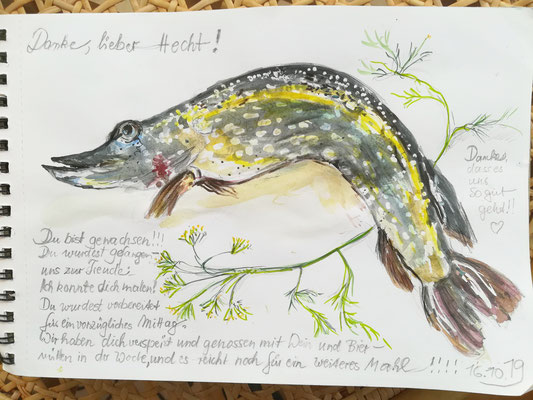 Danke, lieber Hecht!
Danke,
dass es
uns
so gut
geht!!
Du bist gewachsen!!!
Du wurdest gefangen
uns zur Freude.
Ich konnte dich malen!
Du wurdest vorbereitet
für ein vorzügliches Mittag.
Wir haben dich verspeist und genossen mit Wein und Bier –
mitten in der Woche, und es reicht noch für ein weiteres Mahl!!!!
16.10.19